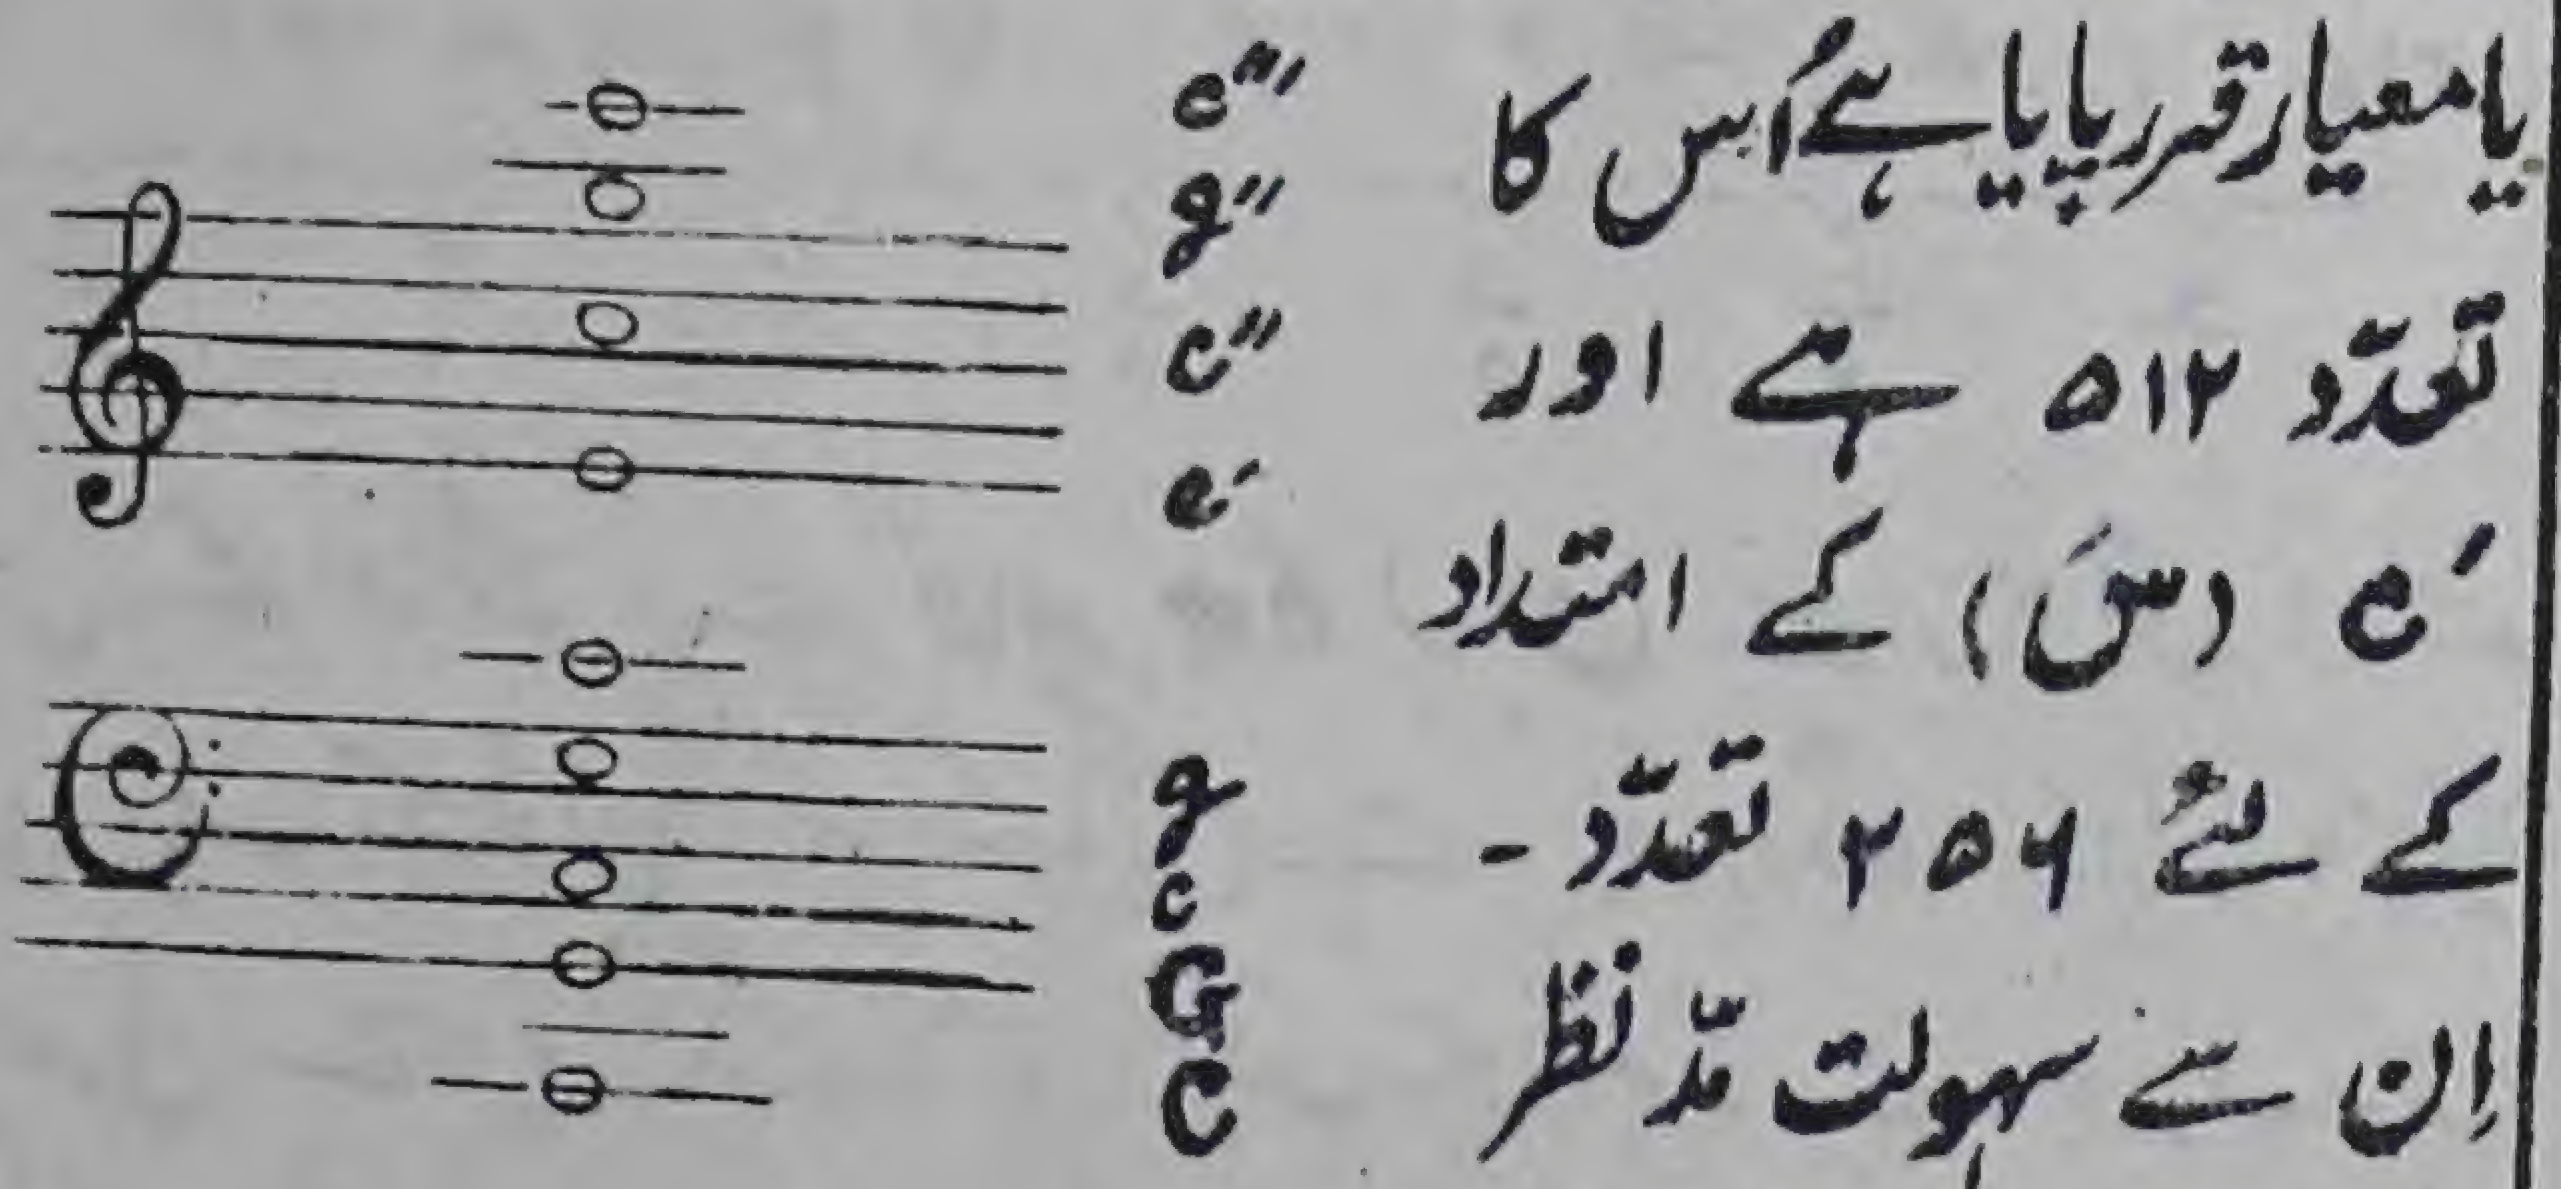 یا معیار قرر پایا ہے اُس کا
تعدّد ۵۱۲ ہے اور
c′ (سَ) کے امتداد
کے لئے ۲۵۶ تعدّد -
اِن سے سہولت مدّ نظر
e'''
g''
c''
e'
g
c
G
C